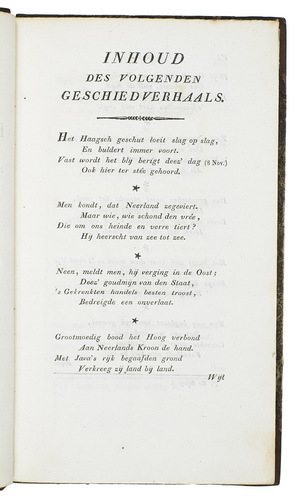 INHOUD
DES VOLGENDEN
GESCHIEDVERHAALS.
Het Haagsch geschut loeit slag op slag,
En buldert immer voort.
Vast wordt het blij berigt deez' dag (8 Nov.)
Ook hier ter stêe gehoord.
*
Men kondt, dat Neerland zegeviert.
Maar wie, wie schond den vrêe,
Die om ons heinde en verre tiert?
Hij heerscht van zee tot zee.
*
Neen, meldt men, hij verging in de Oost;
Deez' goudmijn van den Staat,
's Gekrenkten handels besten troost,
Bedreigde een onverlaat.
*
Grootmoedig bood het Hoog verbond
Aan Neerlands Kroon de hand.
Met Java's rijk begaafden grond
Verkreeg zij land bij land.
Wijl